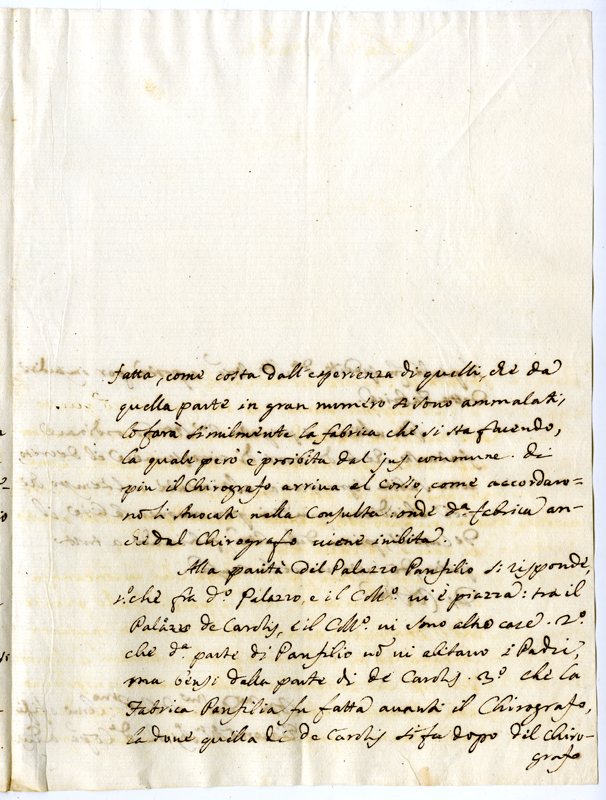 fatta, come costa dall'esperienza di quelli, che da
quella parte in gran numero si sono ammalati;
lo farà similmente la fabrica che si sta facendo,
la quale però è proibita dal jus commune. di
piu il Chirografo arriva al Corso, come accordaro=
no li Avocati nella Consulta: onde d.ª fabrica an-
che dal Chirografo viene inibita.
Alla parità del Palazzo Panfilio si risponde,
1.º che frà d.º Palazzo, e il Coll.º vi è piazza: tra il
Palazzo de Carolis, e il Coll.º vi sono altre case. 2.º
che d.ª parte di Panfilio nõ vi abitavano i Padri,
ma bensi dalla parte di de Carolis. 3.º che la
Fabrica Panfilia fu fatta avanti il Chirografo,
la dove quella di de Carolis si fa dopo del Chiro-
grafo